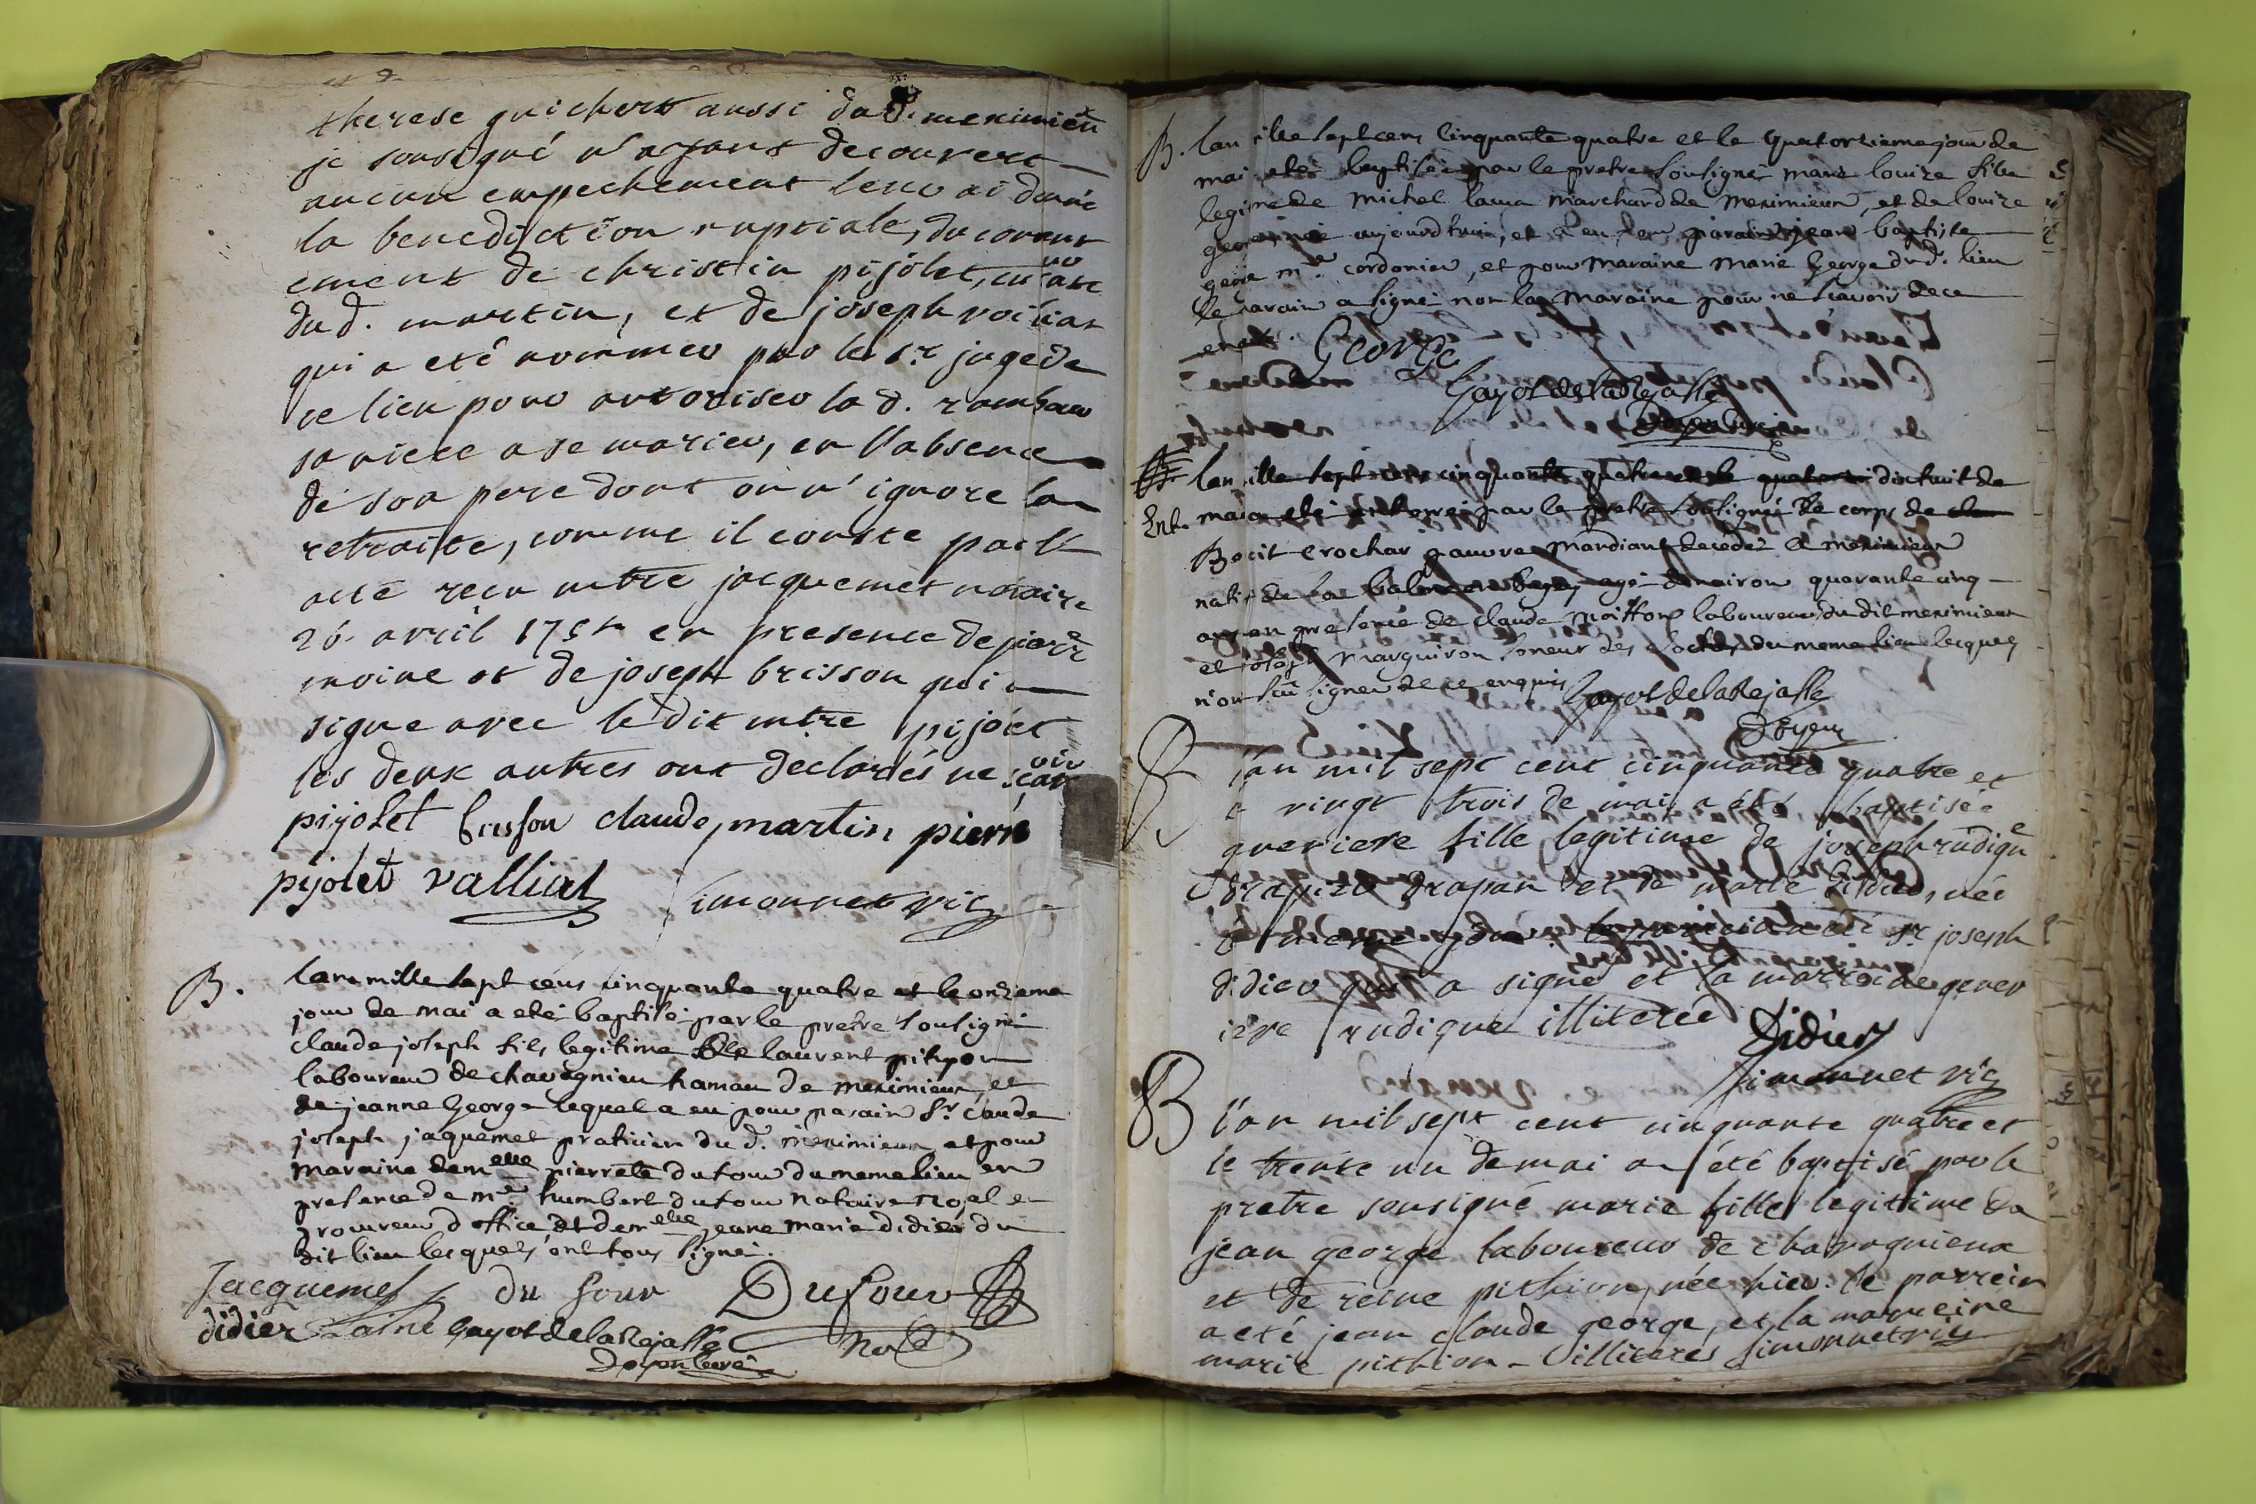 therese guichert aussi du d. meximieu
je sousigné n'ayant decouvert
aucun empechement leur ai donné
la benediction nuptiale, du consent
ement de christin pijolet, curatr
du d. martin, et de joseph voilian
qui a eté nommeu par le sr. juge de
ce lieu pour autoriseu la d. rambau
sa niece a se marieu, en l'absence
de son pere dont on n'ignore la
retraite, comme il conste par l'
acte recu mtre jacquemet notaire
26 avril 1754 en presence de pierre
moine et de joseph brisson qui a
signe avec le dit mtre pijolet
les deux autres ont declarés ne scavoir
pijolet brisson claude martin pierre
pijolet valliat simonnet vic
B. lan mille sept cens cinquante quatre et le onzieme
jour de mai a eté baptisé par le pretre soussigné
claude joseph fils legitime de laurent pithyon
laboureur de chavagnieu hamau de meximieux et
de jeanne george lequel a eu pour parain sr. claude
joseph jaquemet praticien du d. meximieux et pour
maraine demelle pierrete dutour du meme lieu en
presence de me humbert dutour notaire royal et
procureur d'office et demelle jeane marie didier du
dit lieu lesquels ont tous signé.
Jacquemet du four Dufour
didier Laine Gayot de la Rejasse Nore
Doyen curé
B. lan mille sept cens cinquante quatre et le quatorzieme jour de
mai a eté baptisée par le pretre soussigné marie louise fille
legitime de michel marchand de meximieux, et de louise
george née aujourd'huy, et a eu pour parain jean baptiste
george me. cordonier, et pour maraine marie george du d. lieu
le parain a signé non la maraine pour ne scavoir de ce
enquis. George
Gayot de la Rejasse
doyen curé
lan mille sept cens cinquante quatre et le dixhuit de
Ent. mai a eté enterré par le pretre soussigné le corps de
Benoit crochar pauvre mandiant decedé a meximieux
natif de la balme en bugey, agé denviron quarante cinq
ans en presence de claude moiffon laboureur du dit meximieux
et joseph marguiron soneur des cloches du meme lieu lesquels
n'ont scu signer de ce enquis Gayot de la Rejasse
Doyen
B l'an mil sept cent cinquante quatre et
le vingt trois de mai a eté baptisée
gueriere fille legitime de joseph rudigue
drapier drapan et de marie didier, née
le meme jour. le parrein a eté sr. joseph
didieu qui a signé et la marreine gener
iere rudigue illiterée Didier
Simonnet vic
B l'an mil sept cent cinquante quatre et
le trente un de mai a été baptisé par le
pretre sousigné marie fille legittime de
jean george laboureur de chavagnieux
et de reine pithion, née hieu. le parrein
a eté jean claude george, et la marreine
marie pithion - illiteres Simonnet vic